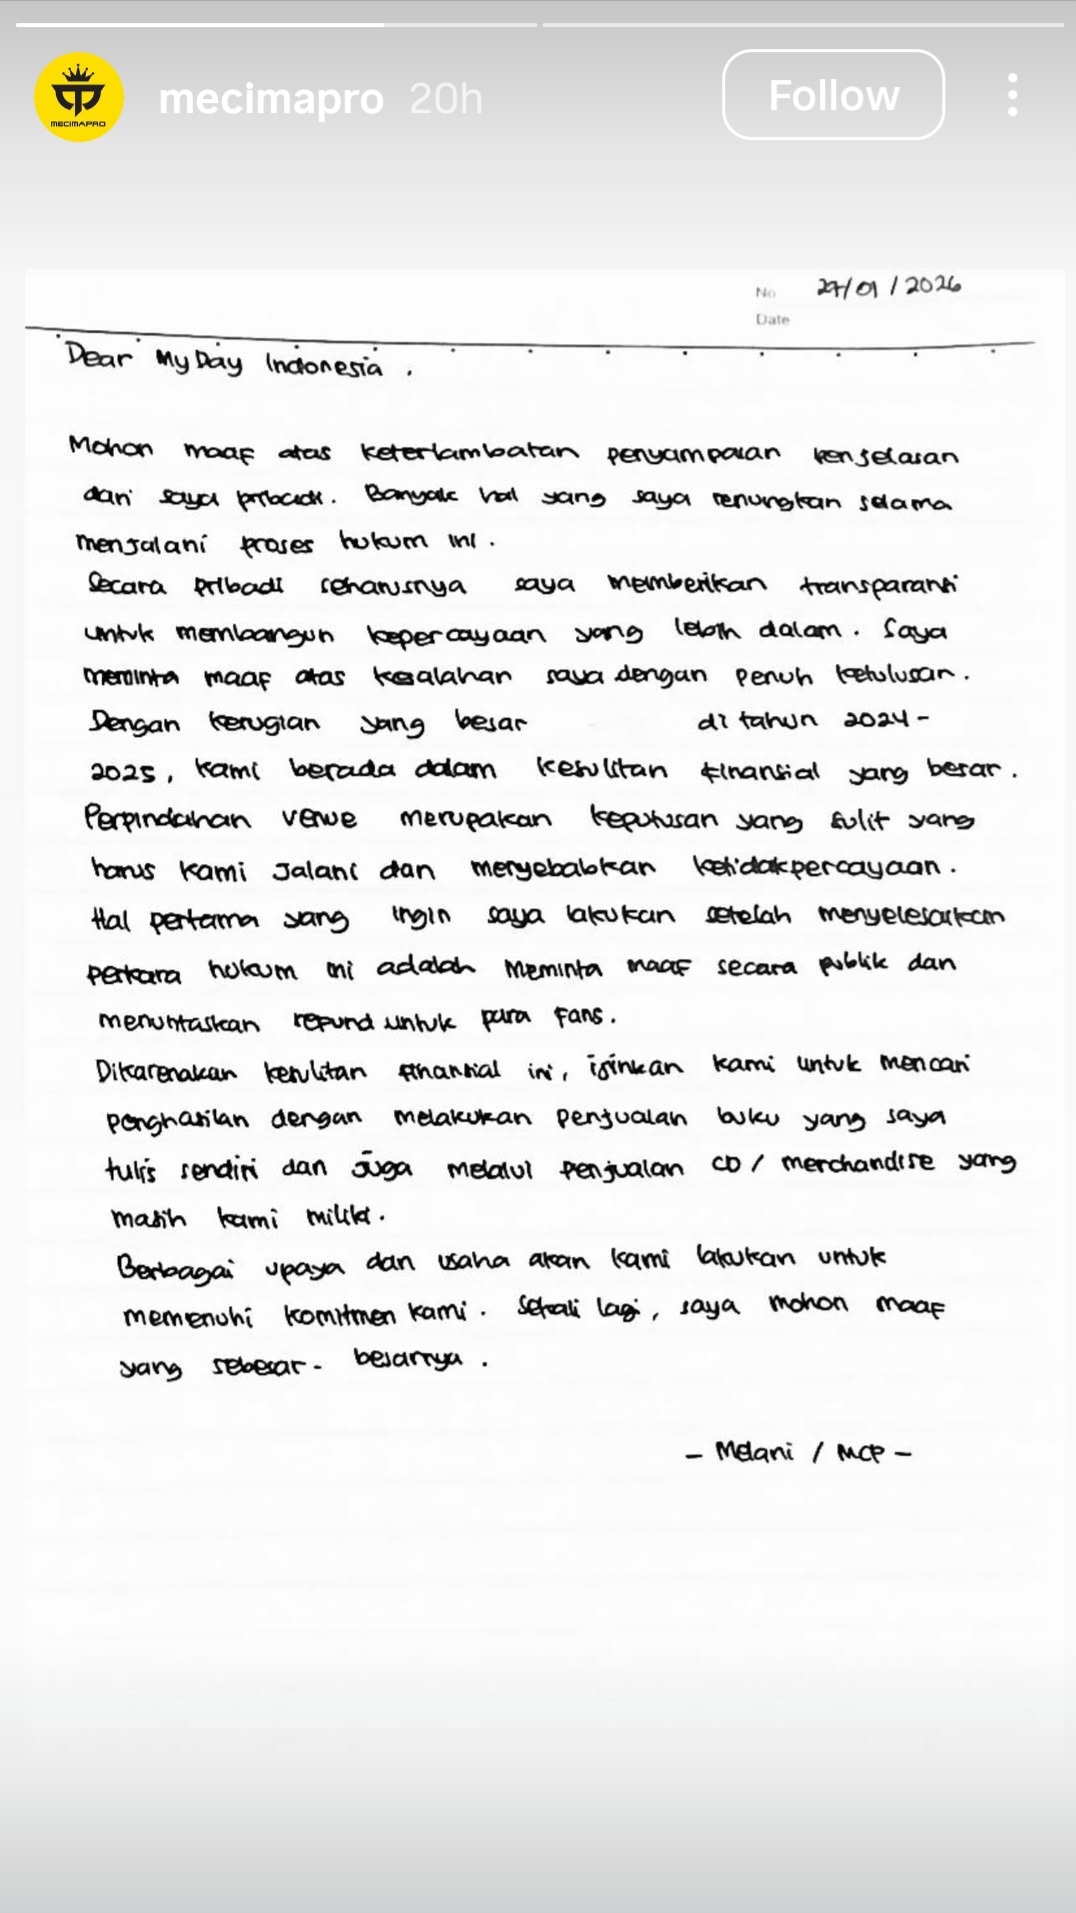 mecimapro 20h
Follow
MECIMAPRO
No 27/01/2026
Date
Dear MyDay Indonesia.
Mohon maaf atas keterlambatan penyampaian penjelasan
dari saya pribadi. Banyak hal yang saya renungkan selama
menjalani proses hukum ini.
Secara pribadi seharusnya saya memberikan transparansi
untuk membangun kepercayaan yang lebih dalam. Saya
meminta maaf atas kesalahan saya dengan penuh ketulusan.
Dengan kerugian yang besar di tahun 2024-
2025, kami berada dalam kesulitan finansial yang besar.
Perpindahan venue merupakan keputusan yang sulit yang
harus kami jalani dan menyebabkan ketidakpercayaan.
Hal pertama yang ingin saya lakukan setelah menyelesaikan
perkara hukum ini adalah meminta maaf secara publik dan
menuntaskan refund untuk para fans.
Dikarenakan kesulitan finansial ini, izinkan kami untuk mencari
penghasilan dengan melakukan penjualan buku yang saya
tulis sendiri dan juga melalui penjualan CD / merchandise yang
masih kami miliki.
Berbagai upaya dan usaha akan kami lakukan untuk
memenuhi komitmen kami. Sekali lagi, saya mohon maaf
yang sebesar-besarnya.
- Melani / MCP -